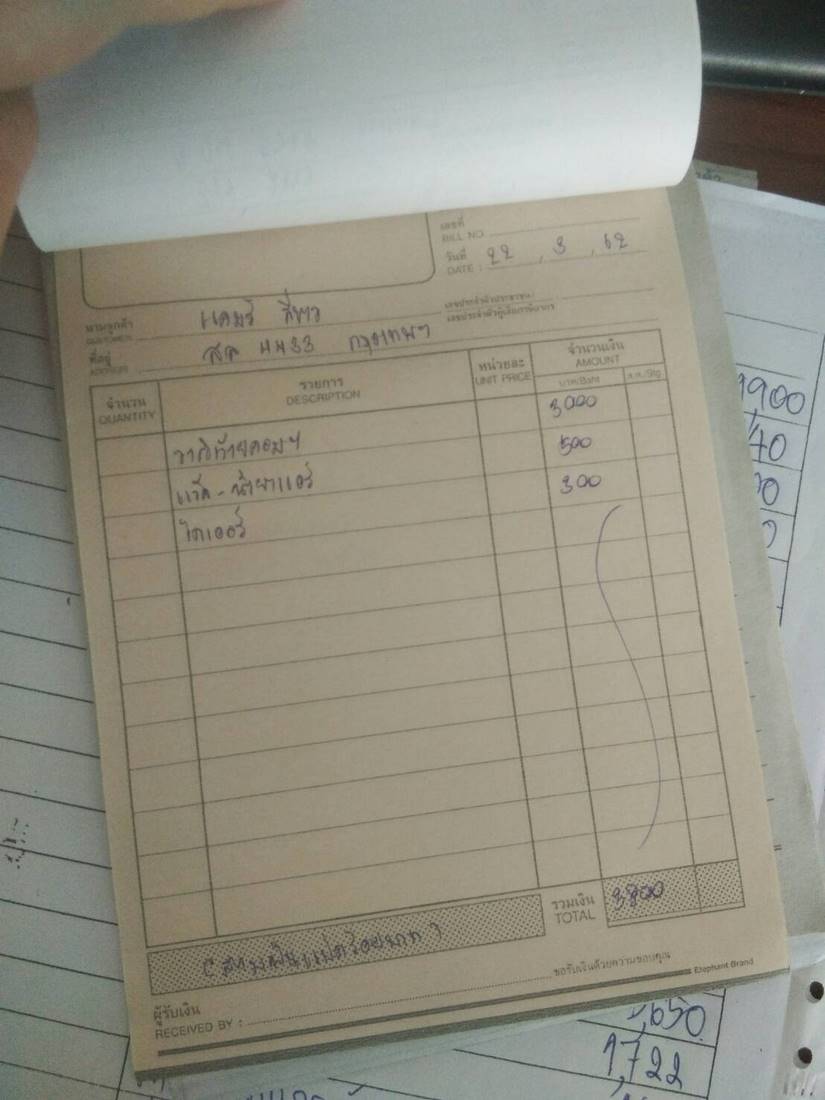 เลขที่
BILL NO.
วันที่ 22 , 3 , 62
DATE :
นามลูกค้า แคมรี่ สีขาว
CUSTOMER
เลขประจำตัวประชาชน/
เลขประจำตัวผู้เสียภาษีอากร
ที่อยู่ 4433 กรุงเทพฯ
ADDRESS
จำนวน รายการ หน่วยละ จำนวนเงิน
QUANTITY DESCRIPTION UNIT PRICE AMOUNT
บาท/Baht ส.ต./Stg.
3000
วาล์วท้ายคอมฯ 500
แว๊ค - น้ำยาแอร์ 300
ไดเออร์
รวมเงิน 3800
TOTAL
(สามพันแปดร้อยบาท)
ขอรับเงินด้วยความขอบคุณ
ผู้รับเงิน
RECEIVED BY :
Elephant Brand
,650
1,722